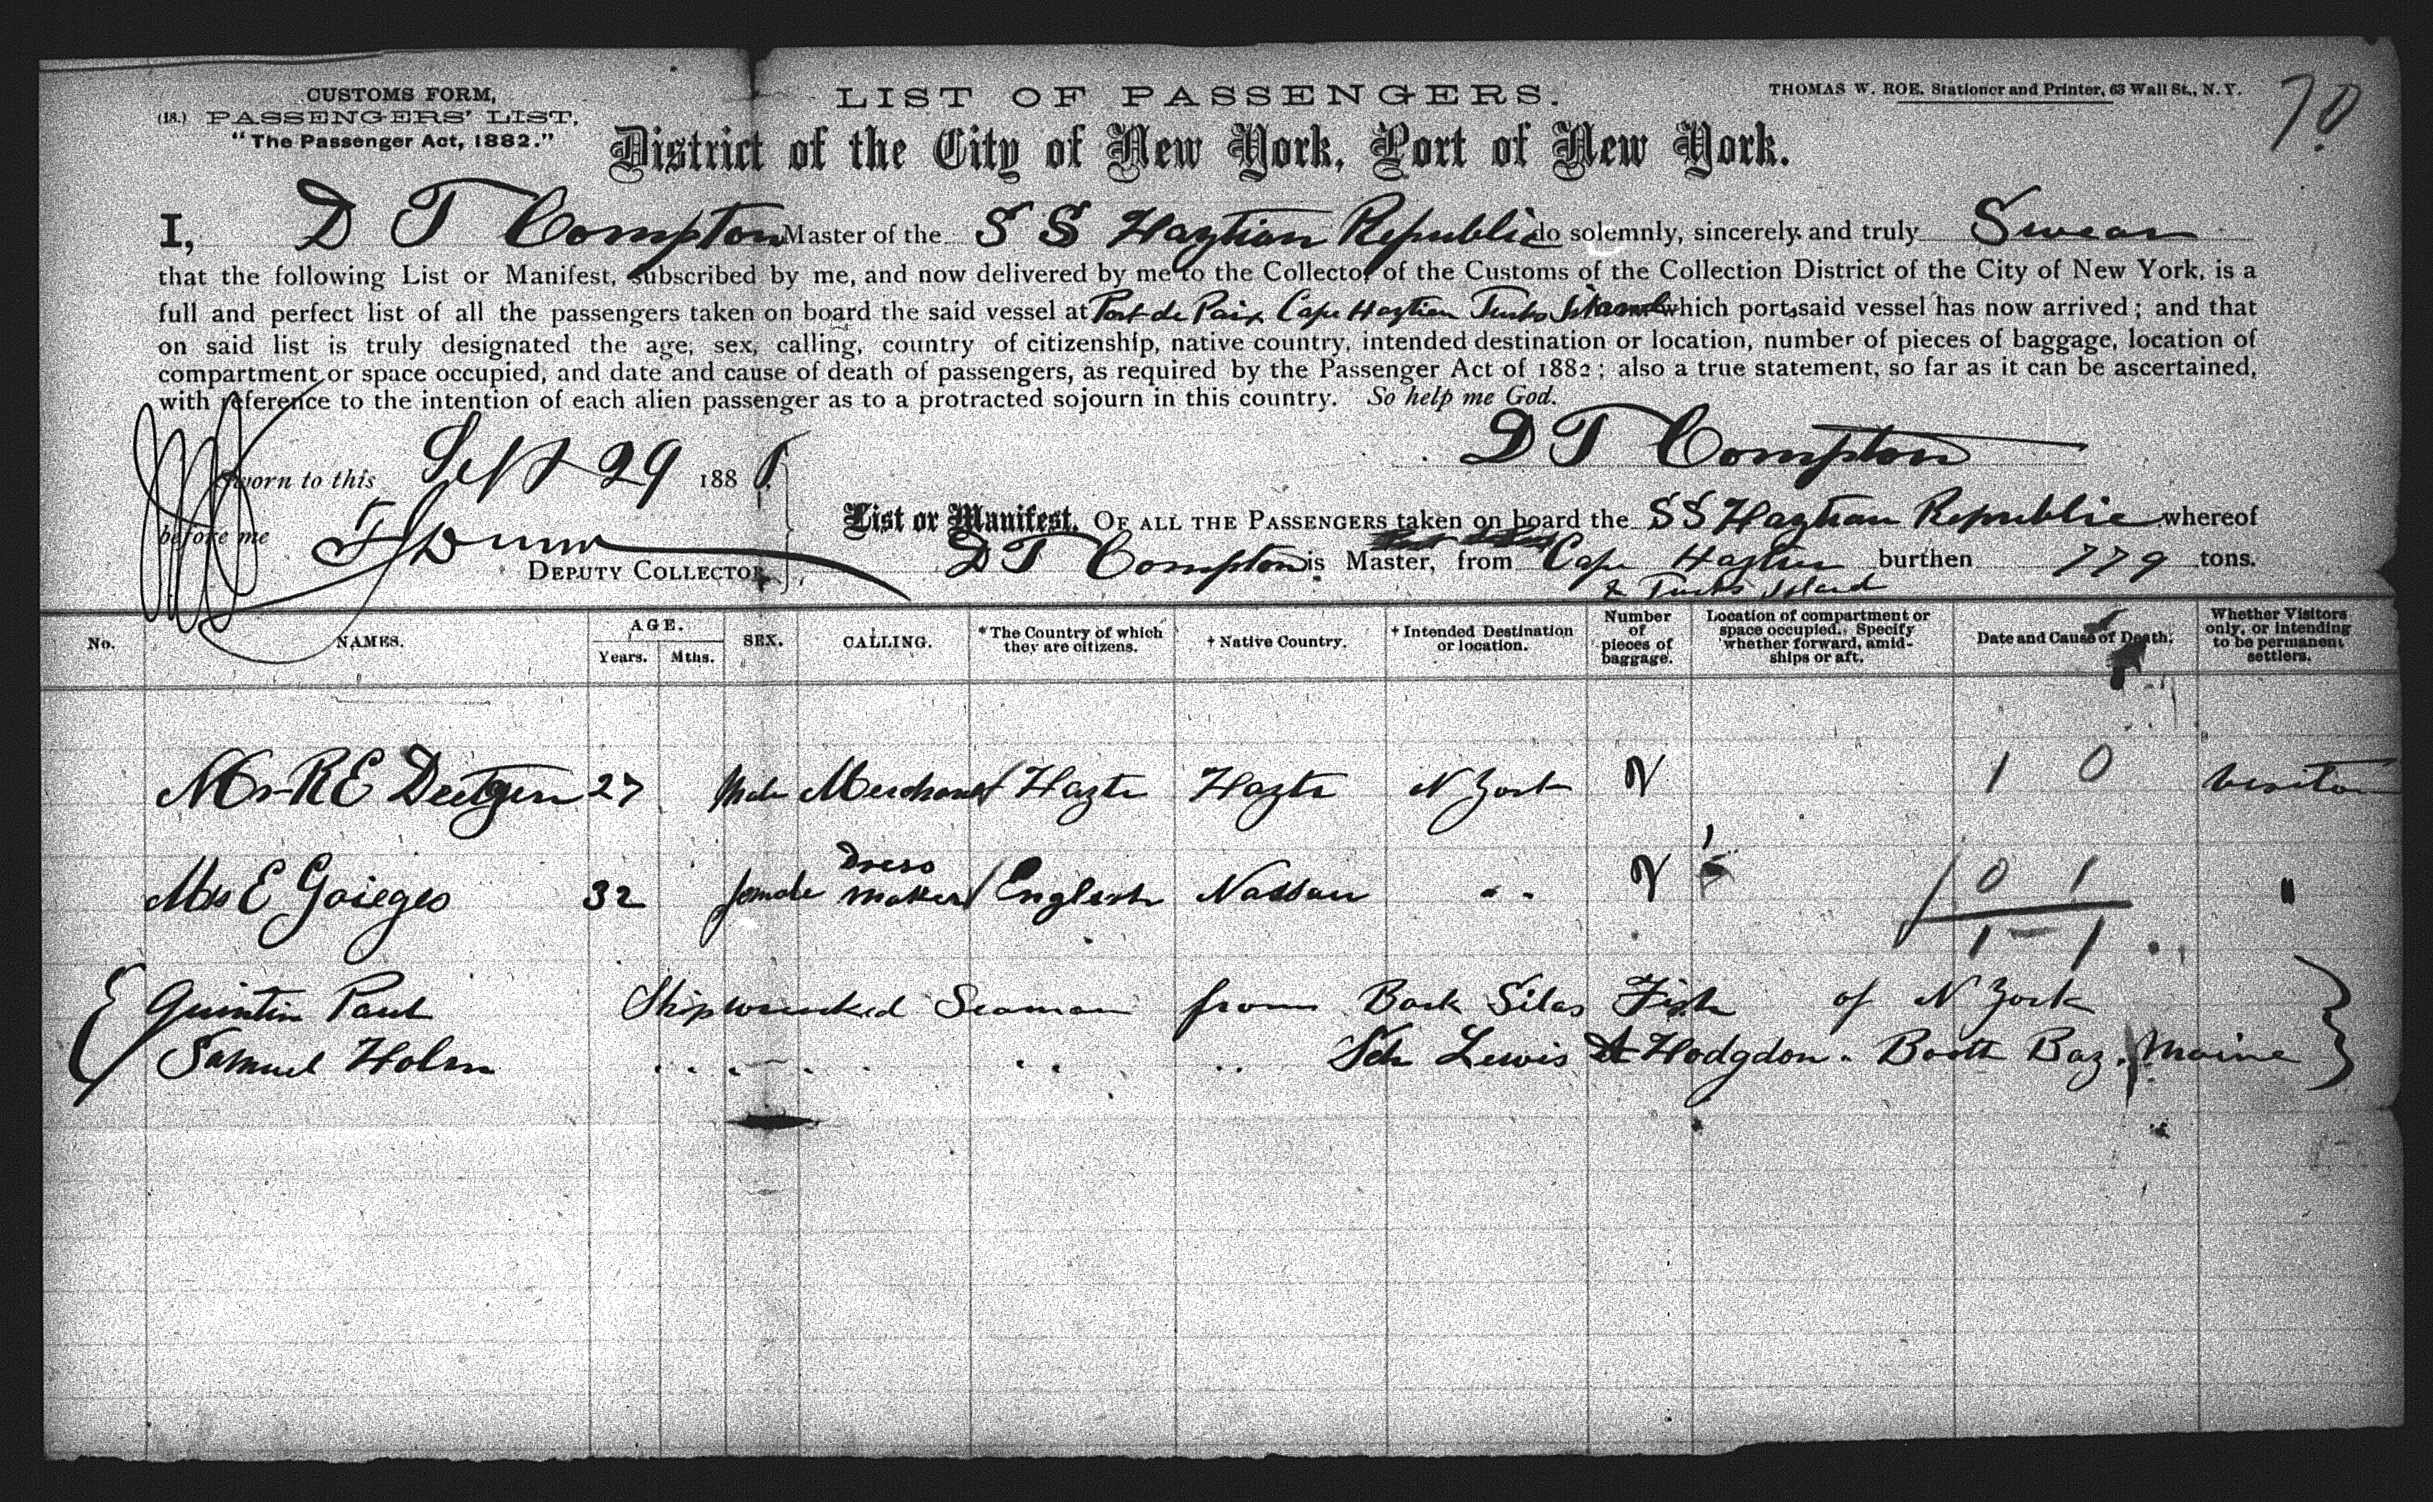 CUSTOMS FORM,
(18.) PASSENGERS' LIST,
"The Passenger Act, 1882."
LIST OF PASSENGERS.
THOMAS W. ROE, Stationer and Printer, 63 Wall St., N. Y.
70
District of the City of New York, Port of New York.
I, D T Compton Master of the S S Haytian Republic do solemnly, sincerely and truly Swear
that the following List or Manifest, subscribed by me, and now delivered by me to the Collector of the Customs of the Collection District of the City of New York, is a
full and perfect list of all the passengers taken on board the said vessel at Port de Paix Cape Haytien Turks Island which ports said vessel has now arrived; and that
on said list is truly designated the age, sex, calling, country of citizenship, native country, intended destination or location, number of pieces of baggage, location of
compartment or space occupied, and date and cause of death of passengers, as required by the Passenger Act of 1882; also a true statement, so far as it can be ascertained,
with reference to the intention of each alien passenger as to a protracted sojourn in this country. So help me God.
D T Compton
Sworn to this Sept 29 188
before me
DEPUTY COLLECTOR.
List or Manifest, OF ALL THE PASSENGERS taken on board the S S Haytian Republic whereof
D T Compton is Master, from Cape Haytien burthen 779 tons.
& Turks Island
No. NAMES. AGE. Years. Mths. SEX. CALLING. *The Country of which they are citizens. † Native Country. † Intended Destination or location. Number of pieces of baggage. Location of compartment or space occupied. Specify whether forward, amid-ships or aft. Date and Cause of Death. Whether Visitors only, or intending to be permanent settlers.
Mr R E 27 Male Merchant Hayti Hayti N York 1 0 visitor
Mrs E 32 female Dress maker English Nassau " " 0 1 "
1 - 1
Quintin Paul Shipwrecked Seaman from Bark Silas Fish of N York
Samuel Holm " " " " Sch Lewis A Hodgdon " Booth Bay, Maine